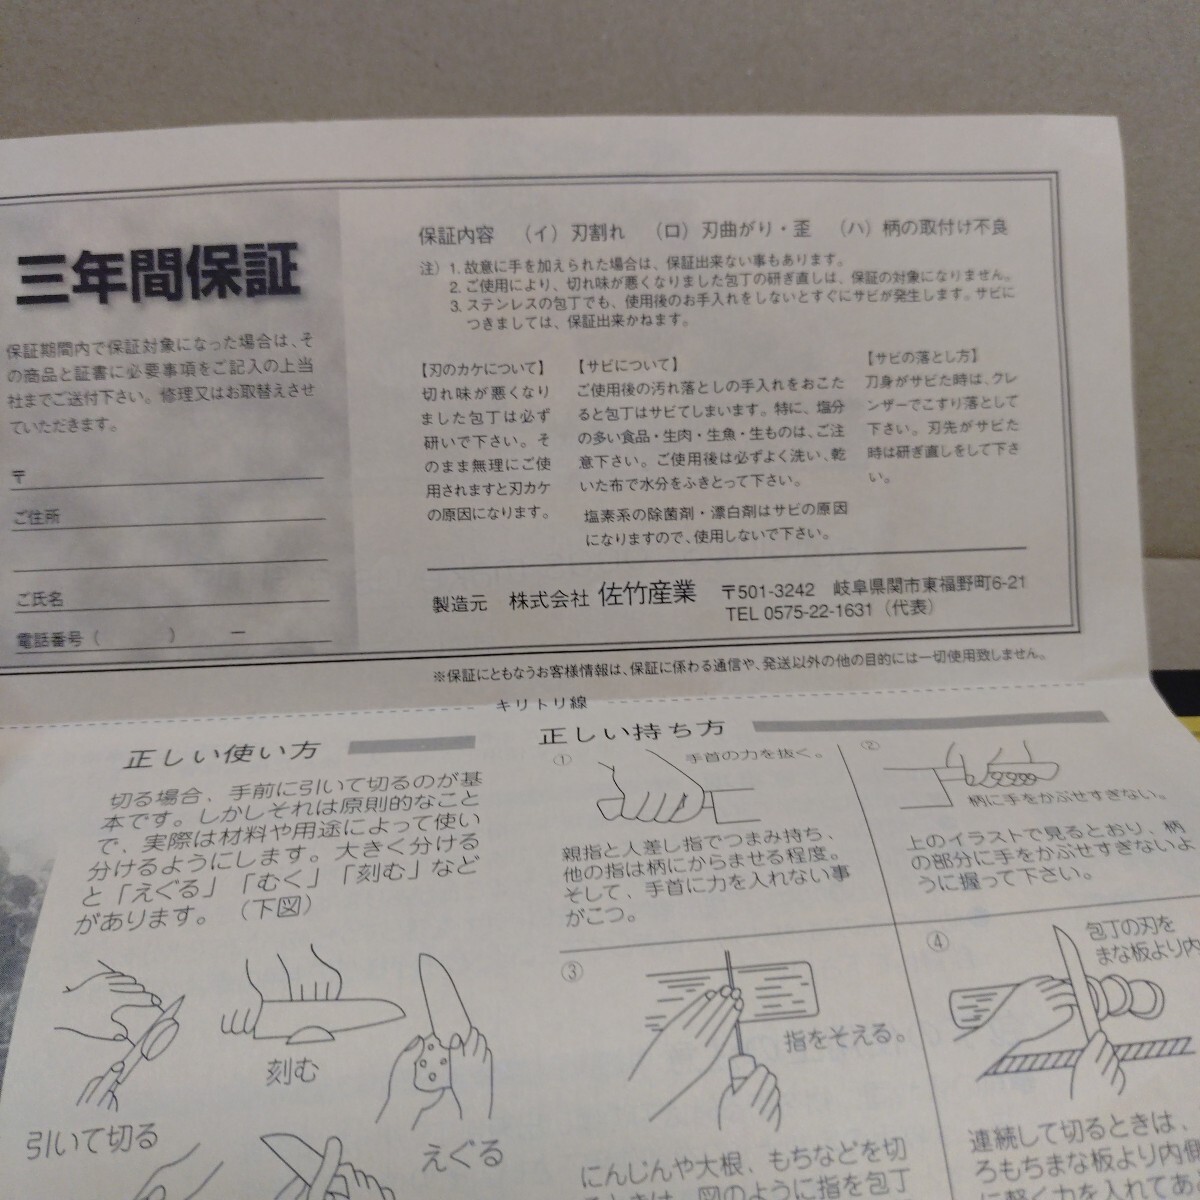 三年間保証
保証期間内で保証対象になった場合は、そ
の商品と証書に必要事項をご記入の上当
社までご送付下さい。修理又はお取替えさせ
ていただきます。
〒
ご住所
ご氏名
電話番号（　　　）　　－
保証内容　（イ）刃割れ　（ロ）刃曲がり・歪　（ハ）柄の取付け不良
注）1. 故意に手を加えられた場合は、保証出来ない事もあります。
2. ご使用により、切れ味が悪くなりました包丁の研ぎ直しは、保証の対象になりません。
3. ステンレスの包丁でも、使用後のお手入れをしないとすぐにサビが発生します。サビに
つきましては、保証出来かねます。
【刃のカケについて】
切れ味が悪くなり
ました包丁は必ず
研いで下さい。そ
のまま無理にご使
用されますと刃カケ
の原因になります。
【サビについて】
ご使用後の汚れ落としの手入れをおこた
ると包丁はサビてしまいます。特に、塩分
の多い食品・生肉・生魚・生ものは、ご注
意下さい。ご使用後は必ずよく洗い、乾
いた布で水分をふきとって下さい。
塩素系の除菌剤・漂白剤はサビの原因
になりますので、使用しないで下さい。
【サビの落とし方】
刀身がサビた時は、クレ
ンザーでこすり落として
下さい。刃先がサビた
時は研ぎ直しをして下さ
い。
製造元　株式会社 佐竹産業　〒501-3242　岐阜県関市東福野町6-21
TEL 0575-22-1631（代表）
※保証にともなうお客様情報は、保証に係わる通信や、発送以外の他の目的には一切使用致しません。
キリトリ線
正しい使い方
切る場合、手前に引いて切るのが基
本です。しかしそれは原則的なこと
で、実際は材料や用途によって使い
分けるようにします。大きく分ける
と「えぐる」「むく」「刻む」など
があります。（下図）
刻む
引いて切る
えぐる
正しい持ち方
①
手首の力を抜く。
親指と人差し指でつまみ持ち、
他の指は柄にからませる程度。
そして、手首に力を入れない事
がこつ。
②
柄に手をかぶせすぎない。
上のイラストで見るとおり、柄
の部分に手をかぶせすぎないよ
うに握って下さい。
③
指をそえる。
にんじんや大根、もちなどを切
るときは、図のように指を包丁
④
包丁の刃を
まな板より内
連続して切るときは、
ろもちまな板より内側